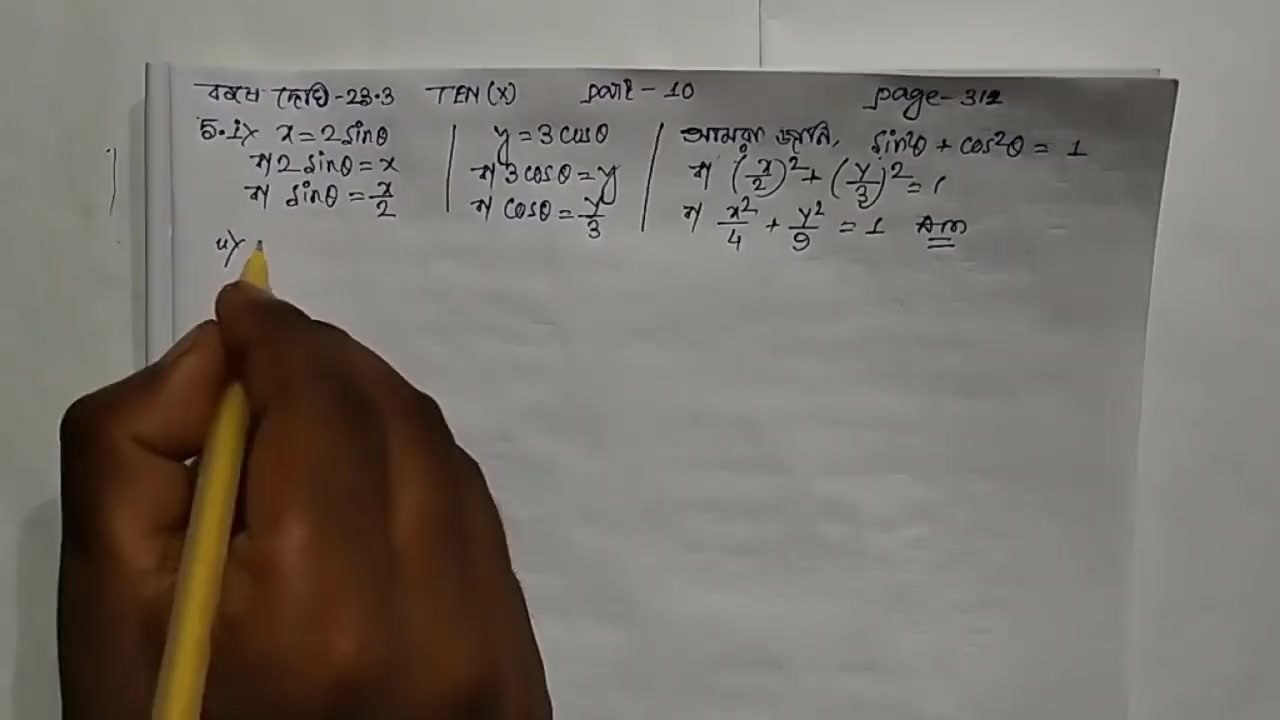 কষে দেখি-23.3 TEN (X) part-10 page-312
5.i) x = 2 sinθ
বা 2 sinθ = x
বা sinθ = x/2
y = 3 cosθ
বা 3 cosθ = y
বা cosθ = y/3
আমরা জানি, sin²θ + cos²θ = 1
বা (x/2)² + (y/3)² = 1
বা x²/4 + y²/9 = 1 Ans
ii)